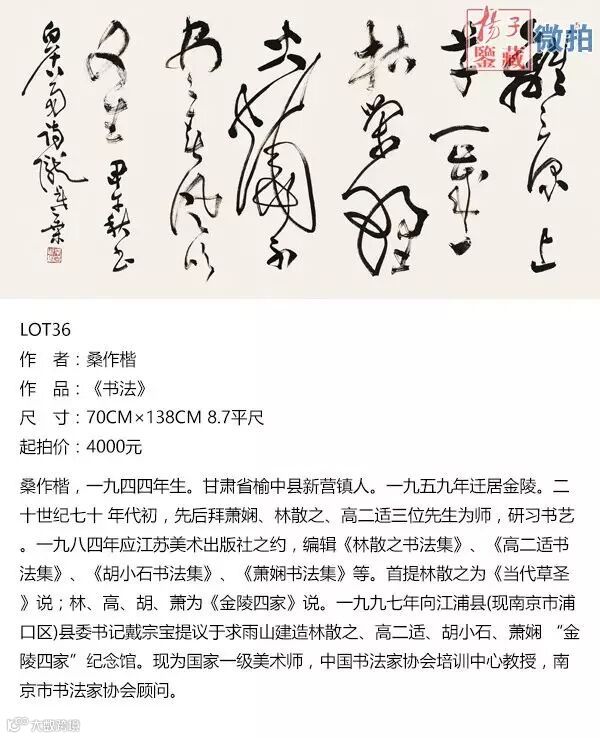 揚子
鑒藏
微拍
離〻原上
草一歲一
枯榮野
火燒不
尽春风吹
又生 甲午秋书
白居易诗
LOT36
作 者：桑作楷
作 品：《书法》
尺 寸：70CM×138CM 8.7平尺
起拍价：4000元
桑作楷，一九四四年生。甘肃省榆中县新营镇人。一九五九年迁居金陵。二
十世纪七十 年代初，先后拜萧娴、林散之、高二适三位先生为师，研习书艺
。一九八四年应江苏美术出版社之约，编辑《林散之书法集》、《高二适书
法集》、《胡小石书法集》、《萧娴书法集》等。首提林散之为《当代草圣
》说；林、高、胡、萧为《金陵四家》说。一九九七年向江浦县(现南京市浦
口区)县委书记戴宗宝提议于求雨山建造林散之、高二适、胡小石、萧娴 “金
陵四家”纪念馆。现为国家一级美术师，中国书法家协会培训中心教授，南
京市书法家协会顾问。
大数跨境